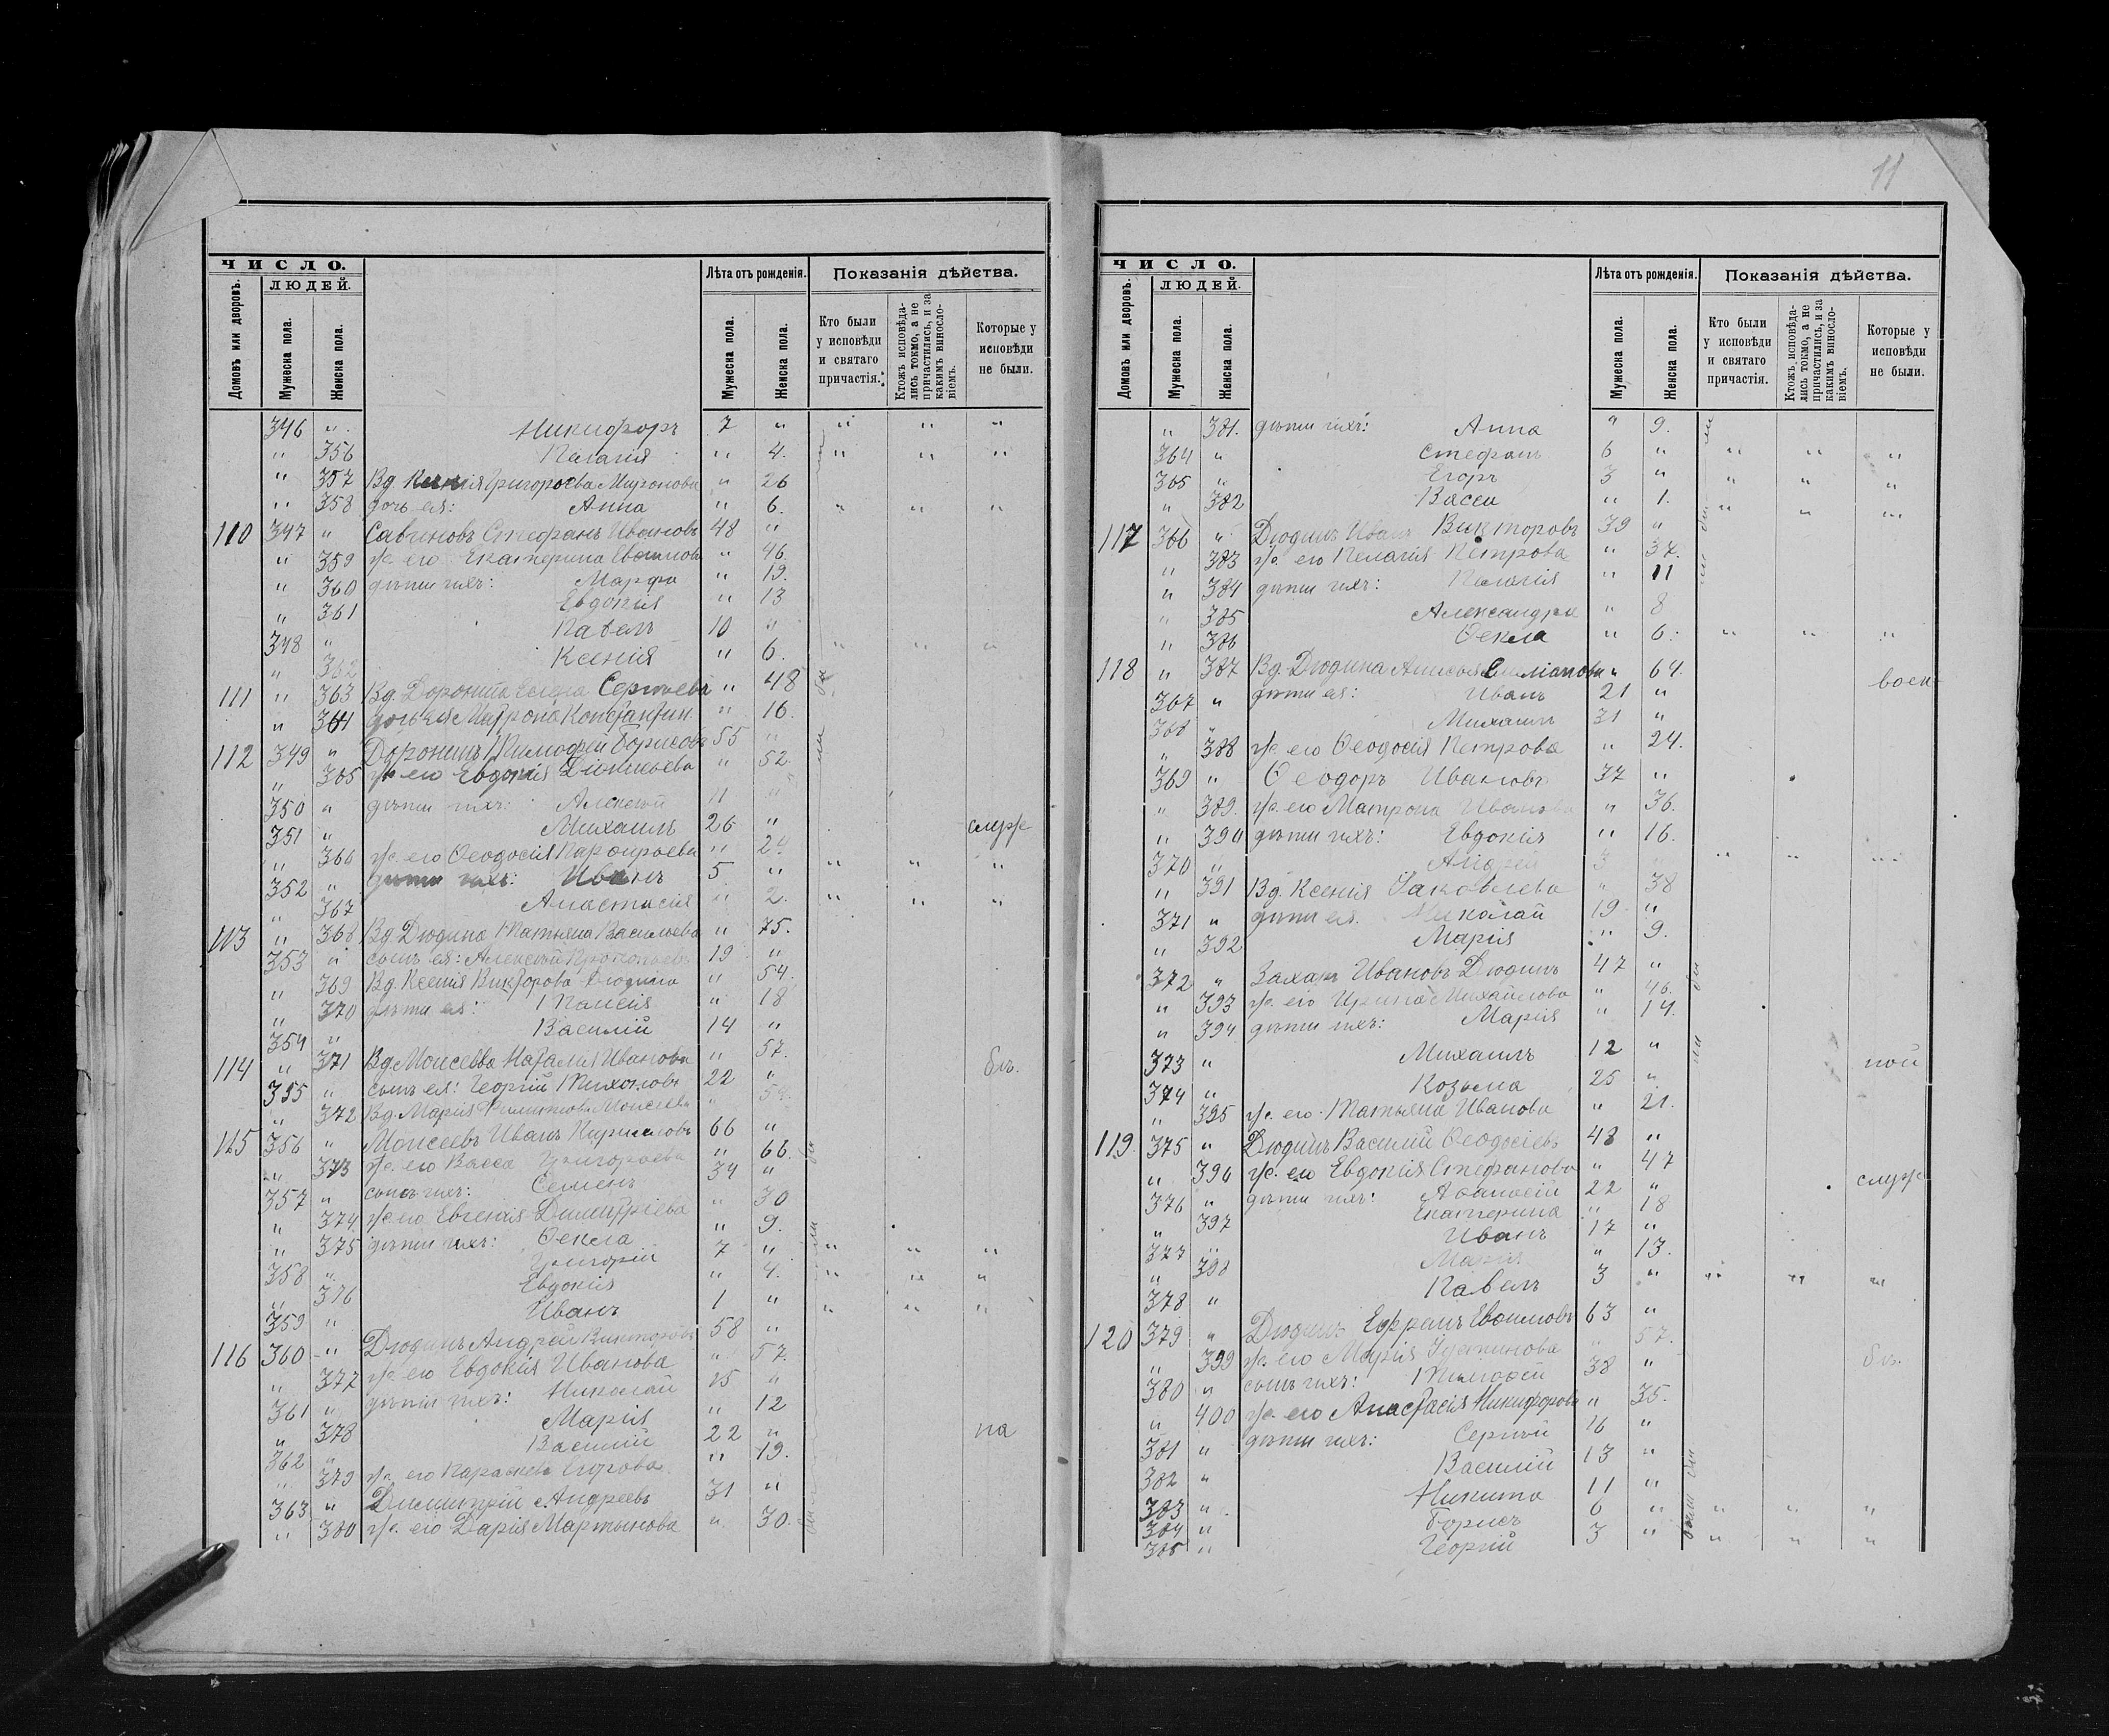 11
Ч И С Л О.
Лѣта отъ рожденія.
Показанія дѣйства.
ЛЮДЕЙ.
Домовъ или дворовъ.
Мужеска пола.
Женска пола.
Мужеска пола.
Женска пола.
Кто были у исповѣди и святаго причастія.
Ктожъ исповѣдались токмо, а не причастились, и за какимъ винословіемъ.
Которые у исповѣди не были.
346 " Никифоръ 7 " " " "
" 356 Пелагія " 4. " " "
" 357 Вд. Григорьева Миронова " 26
" 358 дочь ея: Анна " 6. " " "
110 347 " Савиновъ Стефанъ Ивановъ 48 "
" 359 ж. его Екатерина " 46.
" 360 дѣти ихъ: Марфа " 19.
" 361 Евдокія " 13
348 " Павелъ 10 "
" 362 Ксенія " 6. " " "
111 " 363 Вд. Доронина Елена Сергѣева " 48
" 364 дочь ея Матрона Константин. " 16.
112 349 " Доронинъ Тимофей Борисовъ 55 "
" 365 ж. его Евдокія Діонисьева " 52.
350 " дѣти ихъ: Алексѣй 11 "
351 " Михаилъ 26 " служ
" 366 ж. его Ѳеодосія Парфирьева " 24
352 " дѣти ихъ: Иванъ 5 " " " "
" 367 Анастасія " 2. " " "
113 " 368 Вд. Дюдина Татьяна Васильева " 75.
353 " сынъ ея: Алексѣй Прокопьевъ 19 "
" 369 Вд. Ксенія Викторова Дюдина " 54.
" 370 дѣти ея: Таисія " 18
354 " Василій 14 "
114 " 371 Вд. Моисеева Наталія Иванова " 57. бл.
355 " сынъ ея: Георгій Тихоновъ 22 "
" 372 Вд. Марія Моисеева " 54.
115 356 " Моисеевъ Иванъ Кирилловъ 66 "
" 373 ж. его Васса Григорьева " 66.
357 " сынъ ихъ: Семенъ 34 "
" 374 ж. его Евгенія Димитріева " 30
" 375 дѣти ихъ: Ѳекла " 9.
358 " Григорій 7 " " " "
" 376 Евдокія " 4. " " "
359 " Иванъ 1 " " " "
116 360 " Дюдинъ Андрей Викторовъ 58 "
" 377 ж. его Евдокія Иванова " 57.
361 " дѣти ихъ: Николай 15 "
" 378 Марія " 12
362 " Василій 22 " на
" 379 ж. его Параскева " 19.
363 " Димитрій Андреевъ 31 "
" 380 ж. его Дарія Мартынова " 30.
Ч И С Л О.
Лѣта отъ рожденія.
Показанія дѣйства.
ЛЮДЕЙ.
Домовъ или дворовъ.
Мужеска пола.
Женска пола.
Мужеска пола.
Женска пола.
Кто были у исповѣди и святаго причастія.
Ктожъ исповѣдались токмо, а не причастились, и за какимъ винословіемъ.
Которые у исповѣди не были.
" 381. дѣти ихъ: Анна " 9.
364 " Стефанъ 6 " " " "
365 " Егоръ 3 " " " "
" 382 Васса " 1. " " "
117 366 " Дюдинъ Иванъ Викторовъ 39 "
" 383 ж. его Пелагія Петрова " 37.
" 384 дѣти ихъ: Пелагія " 11
" 385 Александра " 8
" 386 Ѳекла " 6. " " "
118 " 387 Вд. Дюдина " 64.
367 " дѣти ея: Иванъ 21 " воен
368 " Михаилъ 31 "
" 388 ж. его Ѳеодосія Петрова " 24.
369 " Ѳеодоръ Ивановъ 37 "
" 389. ж. его Матрона Иванова " 36.
" 390 дѣти ихъ: Евдокія " 16.
370 " Андрей 3 " " " "
" 391 Вд. Ксенія Іаковлева " 38
371 " дѣти ея. Николай 19 "
" 392 Марія " 9.
372 " Захаръ Ивановъ Дюдинъ 47 "
" 393 ж. его Ирина Михайлова " 46.
" 394 дѣти ихъ: Марія " 14.
373 " Михаилъ 12 "
374 " Козьма 25 " ной
" 395 ж. его Татьяна Иванова " 21.
119. 375 " Дюдинъ Василій Ѳеодосіевъ 48 "
" 396 ж. его Евдокія Стефанова " 47
376 " дѣти ихъ: Аѳанасій 22 " служ
" 397 Екатерина " 18
377 " Иванъ 17 "
" 398 Марія " 13.
378 " Павелъ 3 " " " "
120 379 " Дюдинъ Ефремъ Евѳимовъ 63 "
" 399 ж. его Марія Іустинова " 57.
380 " сынъ ихъ: Тимофей 38 " бл.
" 400 ж. его Анастасія Никифорова " 35.
381 " дѣти ихъ: Сергѣй 16 "
382 " Василій 13 "
383 " Никита 11 "
384 " Борисъ 6 " " " "
385 " Георгій 3 " " " "